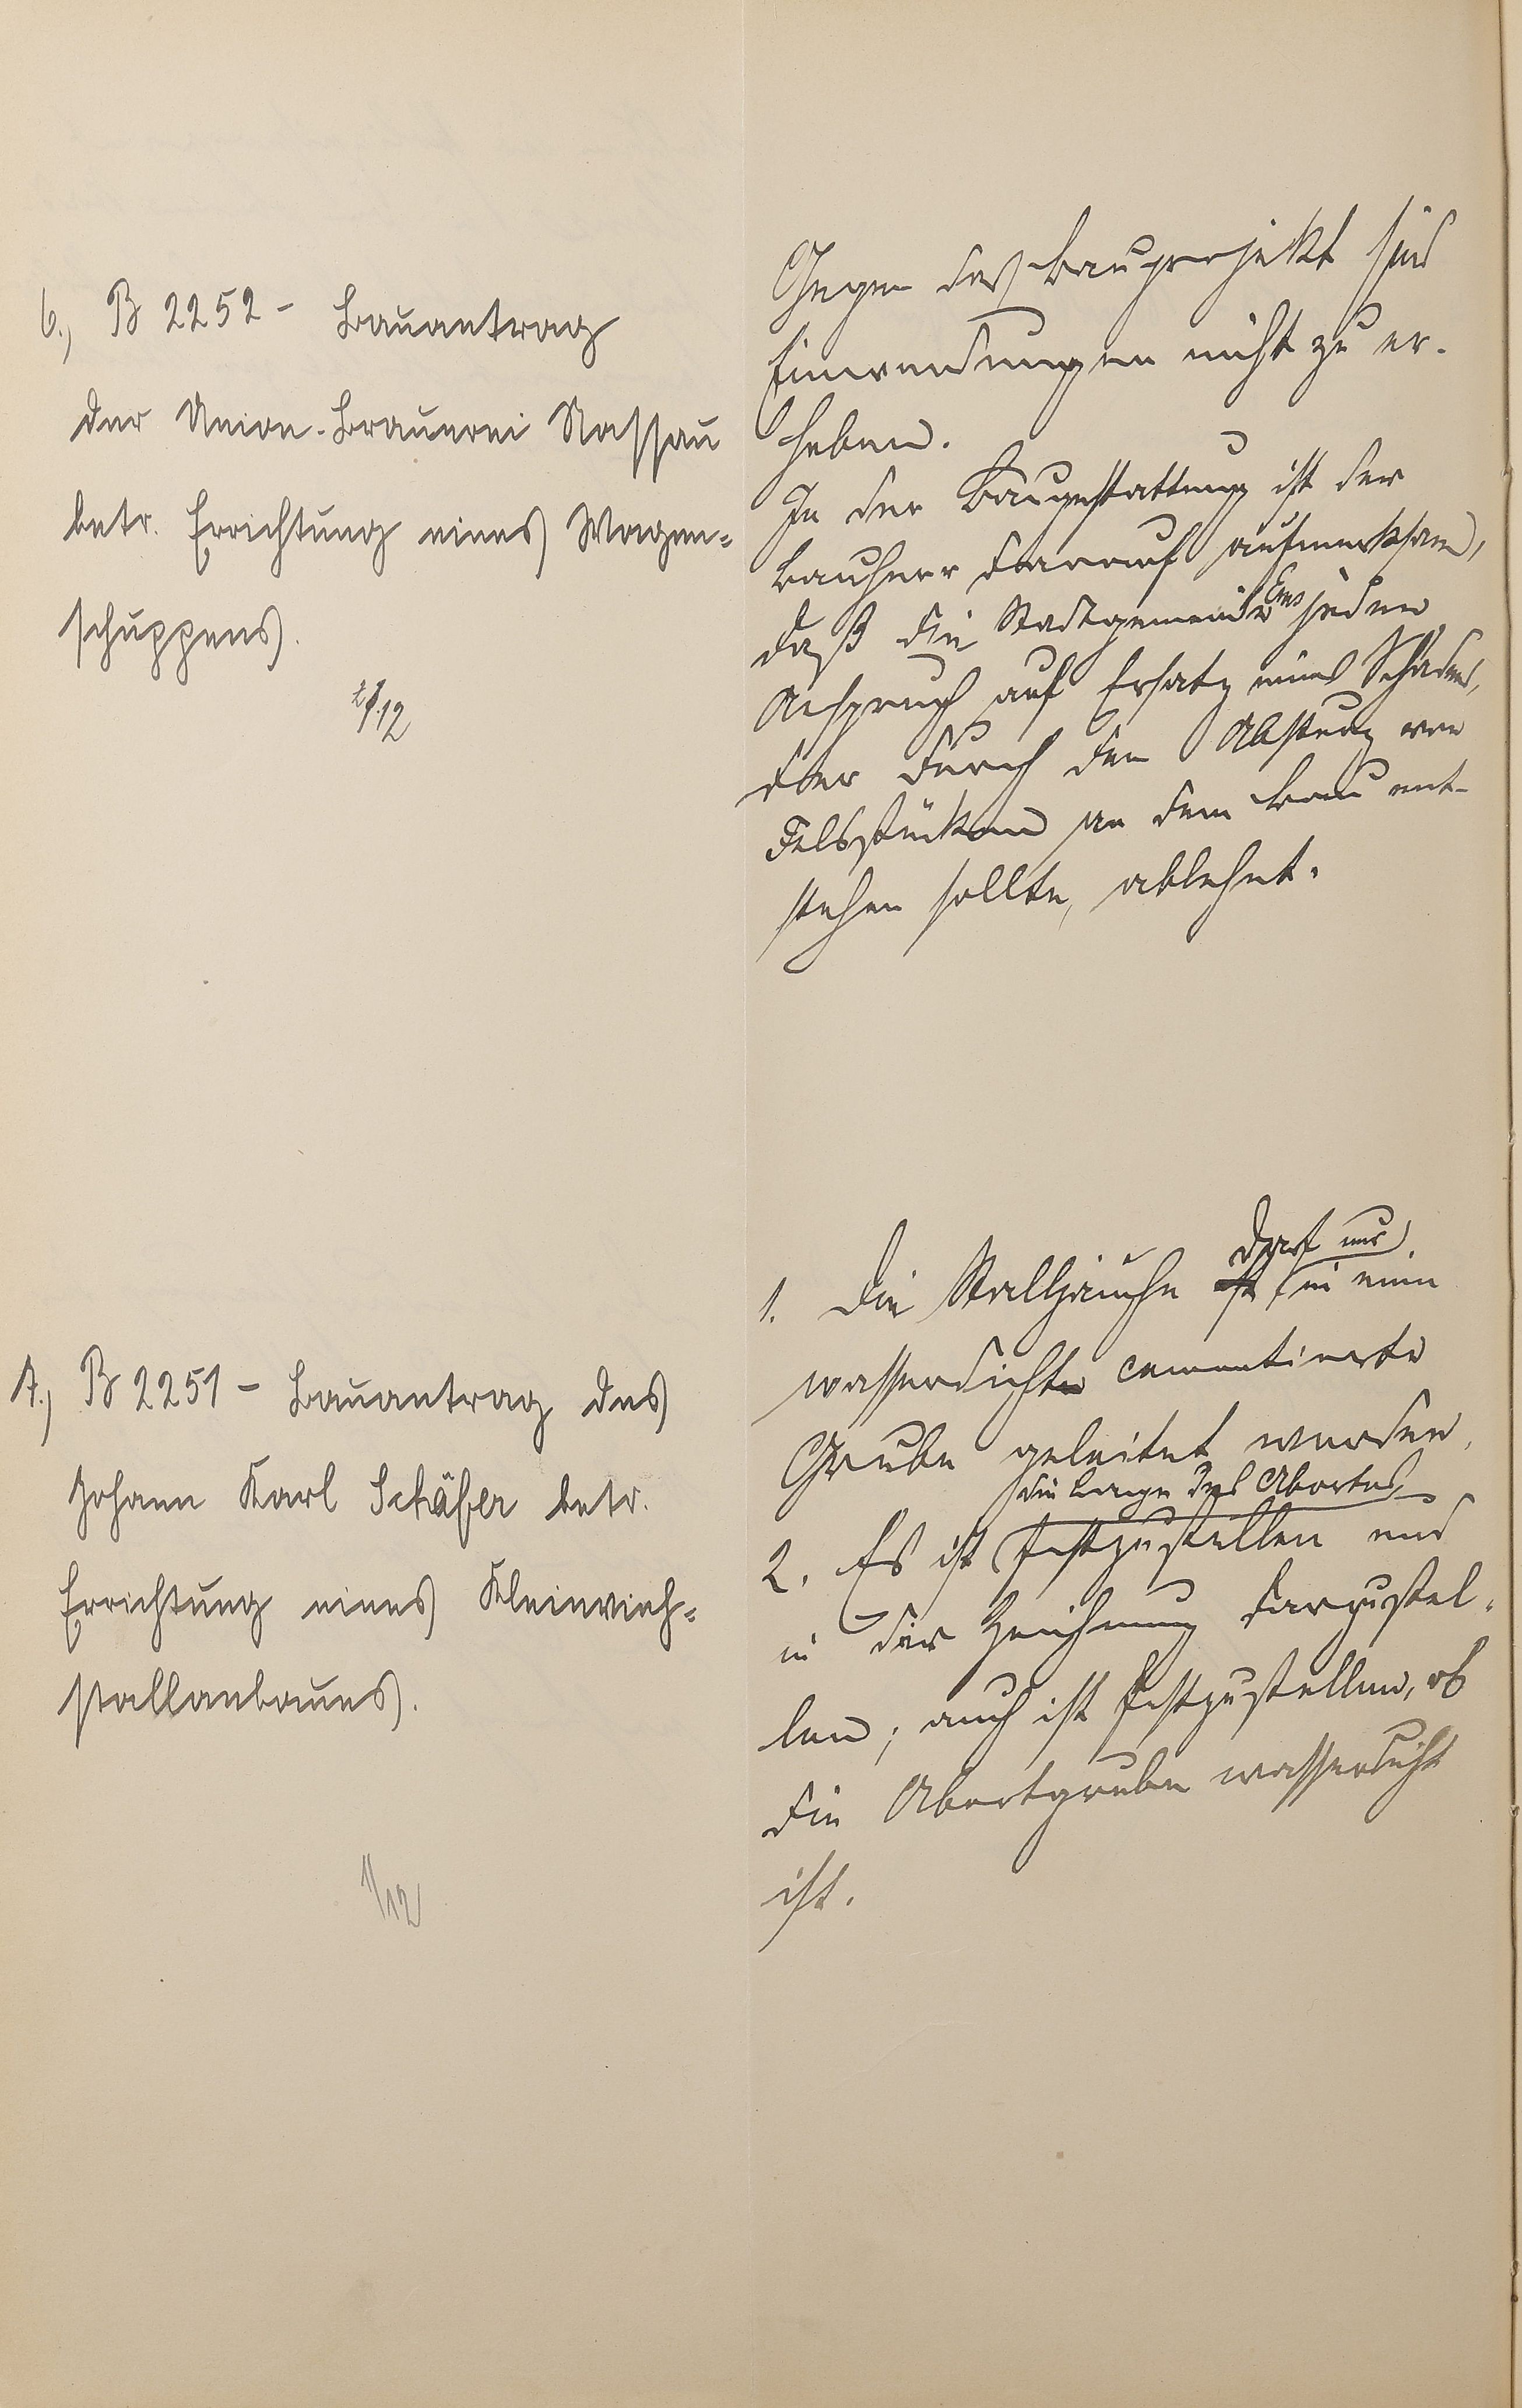 6., B 2252 - Bauantrag
der Union-Brauerei Nassau
betr. Errichtung eines Wagen-
schuppens.
Gegen das Bauprojekt sind
Einwendungen nicht zu er-
heben.
In der Baugestattung ist der
Bauherr darauf aufmerksam,
daß die Stadtgemeinde Ems jeden
Anspruch auf Ersatz eines Schadens,
der durch den Absturz von
Felsstücken an dem Bau ent-
stehen sollte, ablehnt.
7., B 2251 - Bauantrag des
Johann Karl Schäfer betr.
Errichtung eines Kleinvieh-
stallanbaues.
1/12
1. Die Stalljauche darf nur in eine
wasserdichte cementierte
Grube geleitet werden.
2. Es ist die Lage des Abortes festzustellen und
in der Zeichnung darzustel-
len; auch ist festzustellen, ob
die Abortgrube wasserdicht
ist.